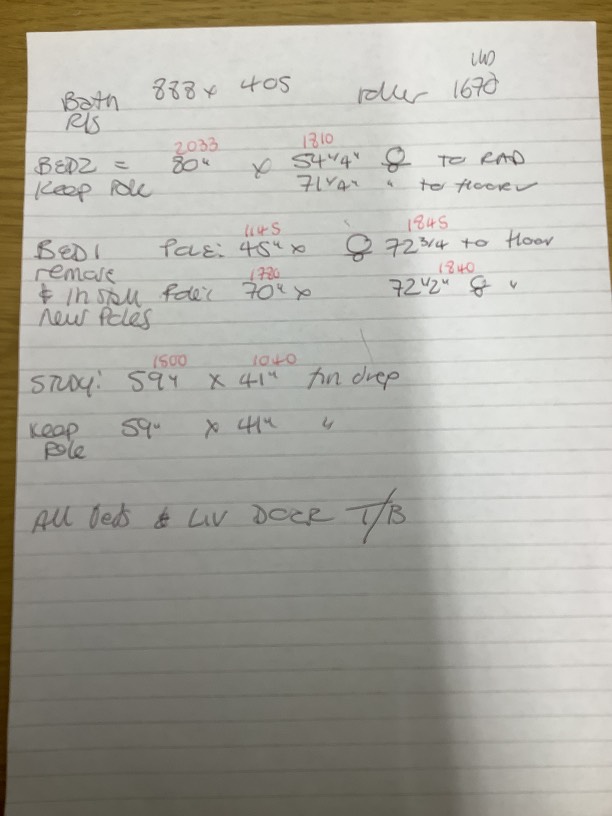 LHO
Bath 888 x 405 roller 1670
R/S
2033 1810
BED2 = 80" x 54 1/4" to RAD
Keep Pole 71 1/4" " to floor ✓
1145 1845
BED1 Pole: 45" x 72 3/4 to floor
remove 1780 1840
& install Pole: 70" x 72 1/2" "
new Poles
1500 1040
STUDY: 59" x 41" fin drop
Keep 59" x 41" "
Pole
All beds & LIV DOOR T/B